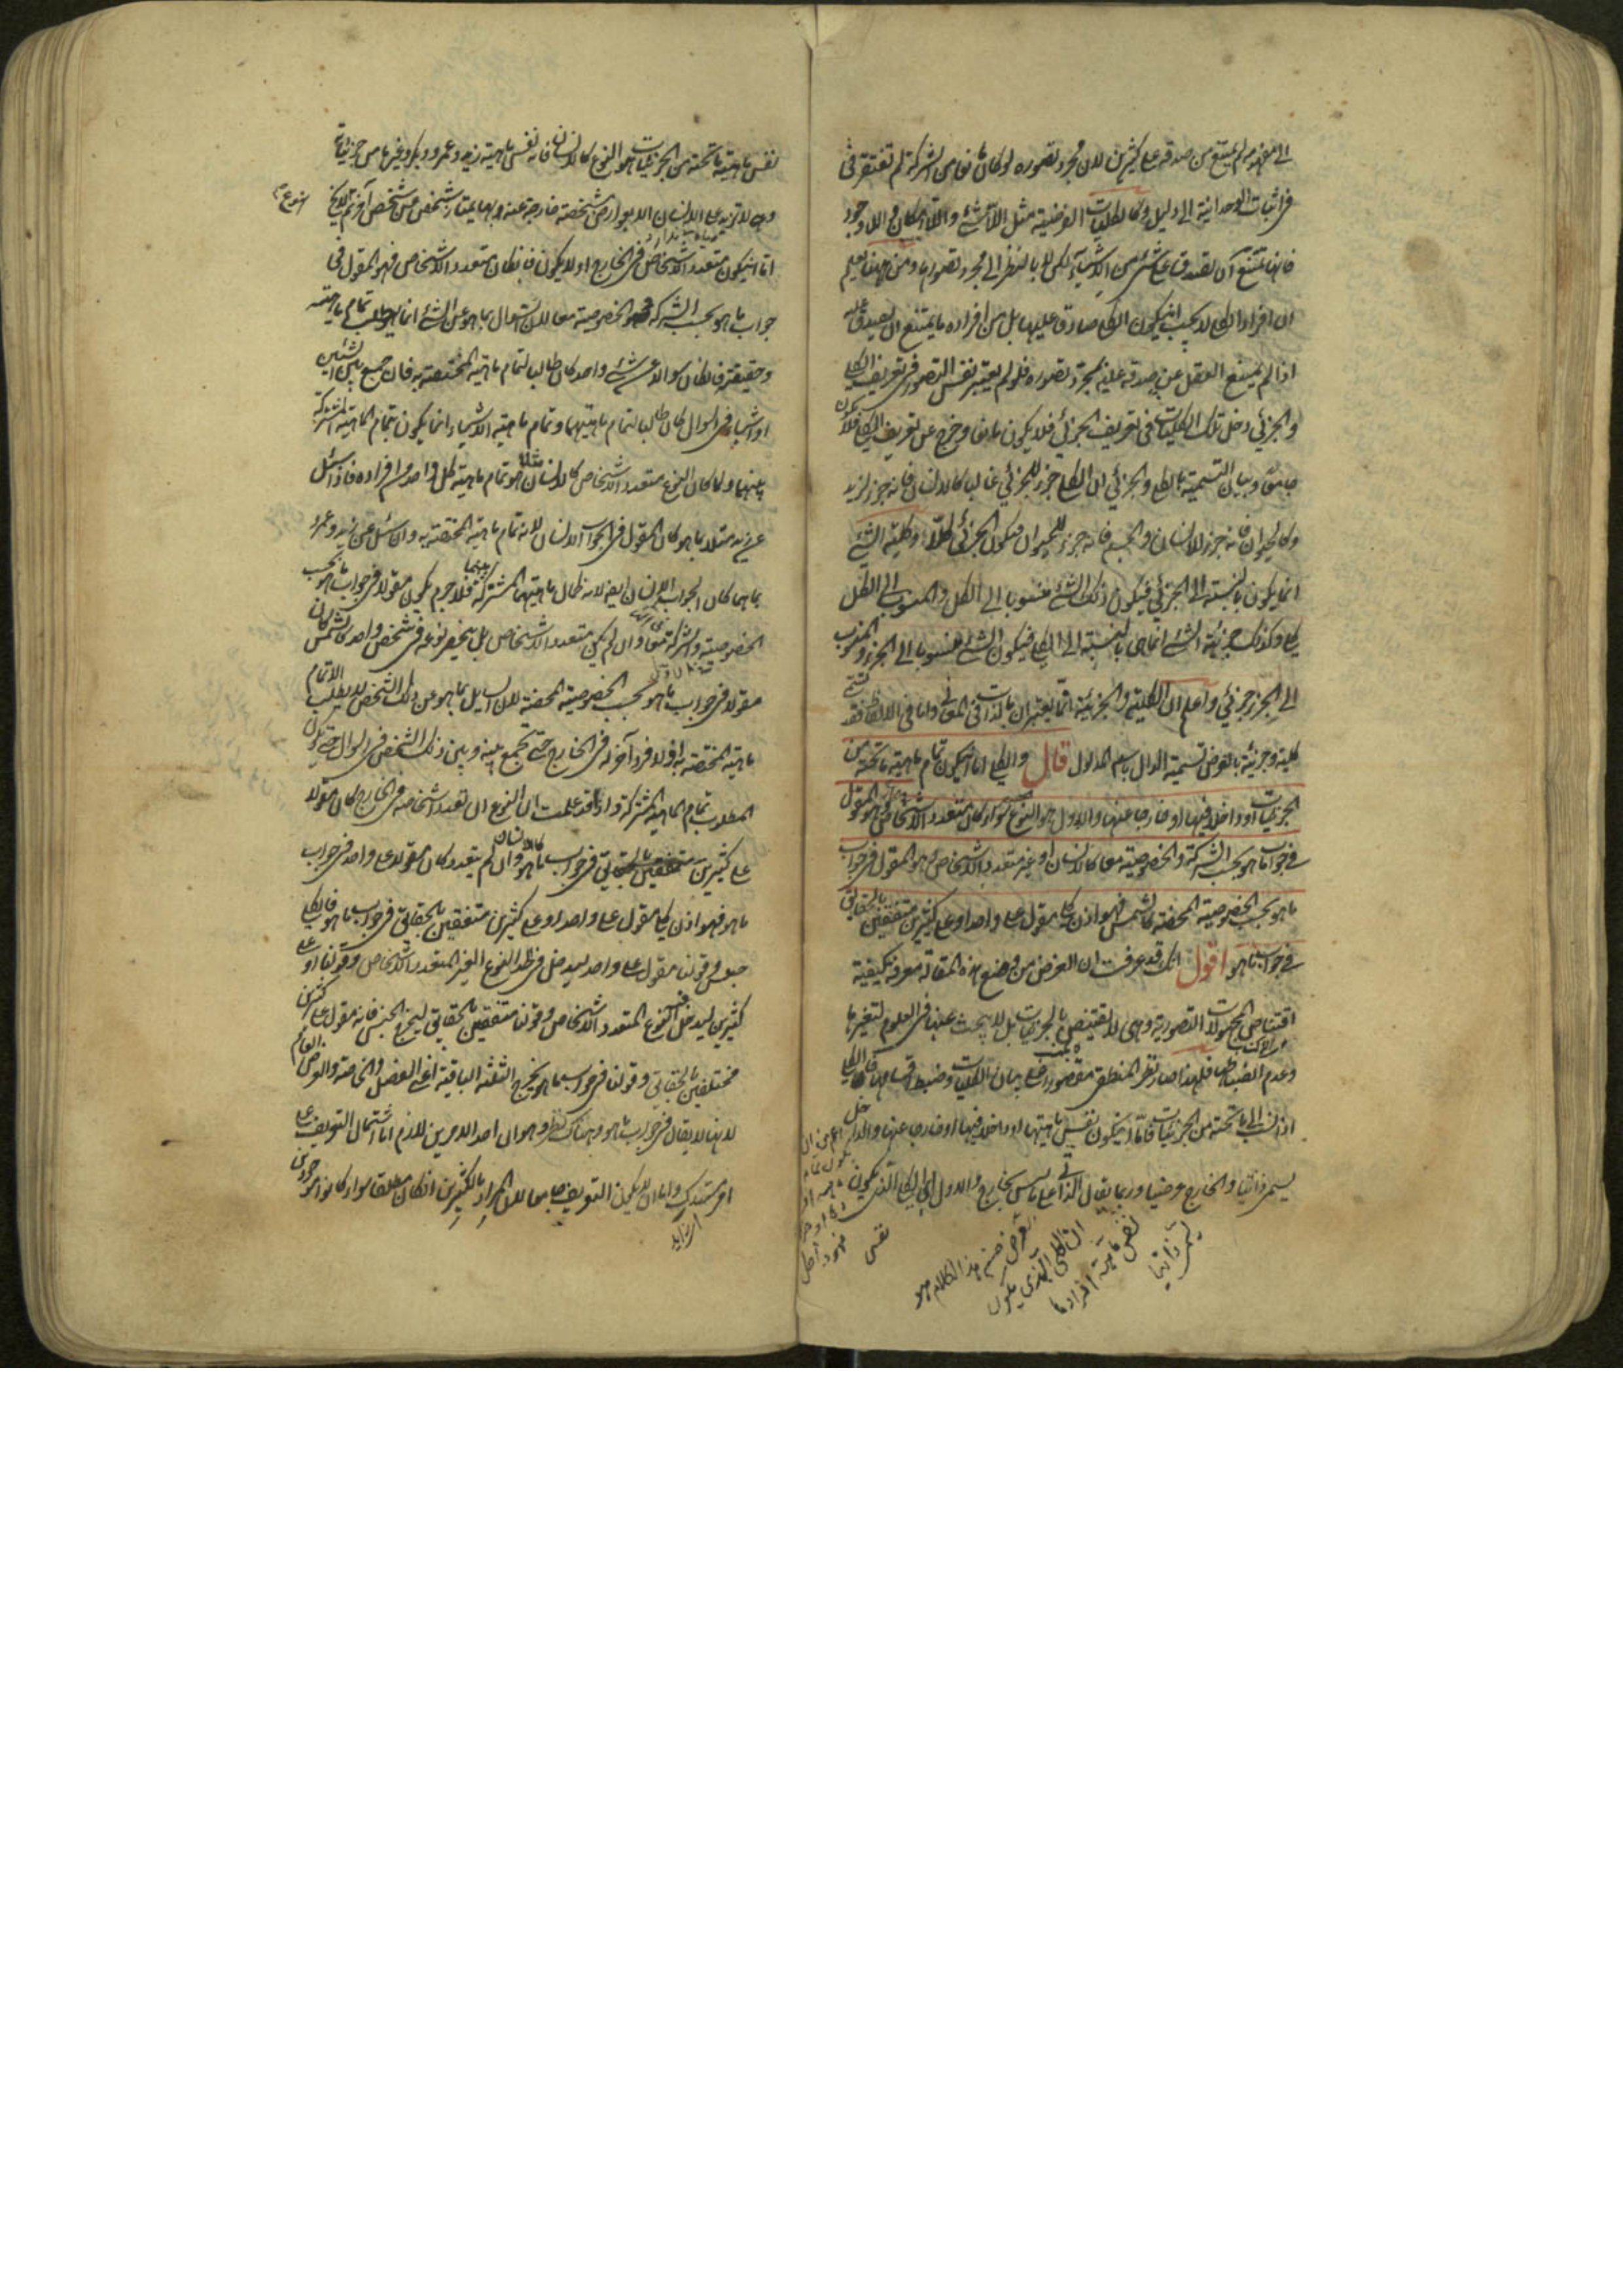 الى مفهومه لم يمتنع من صدقه على كثيرين لان مجرد تصوره لو كان مانعا من الشركة لم تفتقر في
في اثبات الوحدانية الى دليل وكالكليات الفرضية مثل اللاشئ واللاامكان واللاوجود
فانها تمتنع ان تصدق على شئ من الاشياء لكن لا بالنظر الى مجرد تصورها ومن ههنا يعلم
ان افراد الكلى لا يجب ان يكون الكلى صادقا عليها بل من افراده ما يمتنع ان يصدق عليه
اذا لم يمتنع العقل عن صدقه عليه بمجرد تصوره فلو لم يعتبر نفس التصور في تعريف الكلى
والجزئي دخل تلك الكليات في تعريف الجزئي فلا يكون مانعا وخرج عن تعريف الكلى فلا يكون
جامعا وبيان التسمية بالكلى والجزئي ان الكلى جزء للجزئي غالبا كالانسان فانه جزء لزيد
وكالحيوان فانه جزء للانسان والجسم فانه جزء للحيوان فيكون الجزئي كلا وكلية الشئ
انما يكون بالنسبة الى الجزئي فيكون ذلك الشئ منسوبا الى الكل والمنسوب الى الكل
كلي وكذلك جزئية الشئ انما هي بالنسبة الى الكلى فيكون الشئ منسوبا الى الجزء والمنسوب
الى الجزء جزئي واعلم ان الكلية والجزئية انما يعتبران بالذات في المعاني واما في الالفاظ فقد تسمى
كلية وجزئية بالعرض تسمية الدال باسم المدلول قال والكلى اما ان يكون تمام ماهية ما تحته من
الجزئيات او داخلا فيها او خارجا عنها والاول هو النوع سواء كان متعدد الاشخاص وهو المقول
في جواب ما هو بحسب الشركة والخصوصية معا كالانسان او غير متعدد الاشخاص وهو المقول في جواب
ما هو بحسب الخصوصية المحضة كالشمس فهو اذن كلى مقول على واحد او على كثيرين متفقين بالحقائق
في جواب ما هو اقول انك قد عرفت ان الغرض من وضع هذه المقالة معرفة كيفية
اقتناص المجهولات التصورية وهى لا تقتنص بالجزئيات بل لا يبحث عنها في العلوم لتغيرها
وعدم انضباطها فلهذا صار نظر المنطقى مقصورا على بيان الكليات وضبط اقسامها فالكلى
اذا نسب الى ما تحته من الجزئيات فاما ان يكون نفس ماهيتها او داخلا فيها او خارجا عنها والداخل
يسمى ذاتيا والخارج عرضيا وربما يقال الذاتي على ما ليس بخارج والاول اي الكلى الذي يكون
الغرض من هذا الكلام هو
ان الكلى الذي يكون
نفس ماهية افرادها
يسمى ذاتيا
نفس ماهية ما تحته من الجزئيات هو النوع كالانسان فانه نفس ماهية زيد وعمرو وبكر وغيرها من جزئياته
وهى لا تزيد على الانسان الا بعوارض مشخصة خارجة عنه وبها يمتاز شخص عن شخص آخر ثم النوع
اما ان يكون متعدد الاشخاص في الخارج او لا يكون فان كان متعدد الاشخاص فهو المقول في
جواب ما هو بحسب الشركة والخصوصية معا لان السوال بما هو عن الشئ انما هو لطلب تمام ماهيته
وحقيقته فان كان سوالا عن شئ واحد كان طالبا لتمام ماهيته المختصة به وان جمع بين الشيئين
او اشياء في السوال كان طالبا لتمام ماهيتهما وتمام ماهية الاشياء انما يكون بتمام الماهية المشتركة
بينها ولما كان النوع متعدد الاشخاص كالانسان مثلا هو تمام ماهية كل واحد من افراده فاذا سئل
عن زيد مثلا بما هو كان المقول في الجواب الانسان لانه تمام ماهيته المختصة به وان سئل عن زيد وعمرو
بما هما كان الجواب الانسان ايضا لانه كمال ماهيتهما المشتركة بينهما فلا جرم يكون مقولا في جواب ما هو بحسب
الخصوصية والشركة معا وان لم يكن متعدد الاشخاص بل ينحصر نوعه في شخص واحد كالشمس كان
مقولا في جواب ما هو بحسب الخصوصية المحضة لان السايل بما هو عن ذلك الشخص لا يطلب الا تمام
ماهيته المختصة به اذ لا فرد آخر له في الخارج حتى يجمع بينه وبين ذلك الشخص في السوال حتى يكون
المطلوب تمام الماهية المشتركة واذا قد علمت ان النوع ان تعدد اشخاصه في الخارج كان مقولا
على كثيرين متفقين بالحقائق في جواب ما هو كالانسان وان لم يتعدد كان مقولا على واحد في جواب
ما هو فهو اذن كلى مقول على واحد او على كثيرين متفقين بالحقائق في جواب ما هو فالكلى
جنس وقولنا مقول على واحد ليدخل في الحد النوع الغير المتعدد الاشخاص وقولنا او على
كثيرين ليدخل النوع المتعدد الاشخاص وقولنا متفقين بالحقائق ليخرج الجنس فانه مقول على كثيرين
مختلفين بالحقائق وقولنا في جواب ما هو يخرج الثلثة الباقية اعنى الفصل والخاصة والعرض العام
لانها لا يقال في جواب ما هو وهناك نظر وهو ان احد الامرين لازم اما اشتمال التعريف على
امر مستدرك واما ان لا يكون التعريف جامعا لان المراد بالكثيرين ان كان مطلقا سواء كانوا موجودين
اي زايد